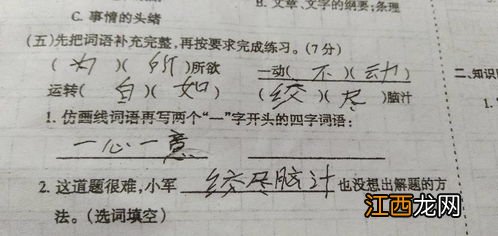 C. 事情的头绪
B. 文章、文字的纲要;条理
(五)先把词语补充完整,再按要求完成练习。(7分)
(为)(所)所欲 一动(不)(动)
运转(自)(如) (绞)(尽)脑汁
二、知识
1.仿画线词语再写两个“一”字开头的四字词语:
一心一意
1.
2.这道题很难,小军 绞尽脑汁 也没想出解题的方
法。(选词填空)
江西龙网